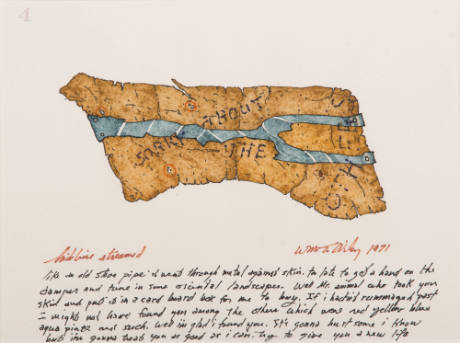 4
SORRY ABOUT
THE
Wm T. Wiley 1971
like an old stove pipe it went through metal against skin. To late to get a hand on the
damper and tune in some oriental landscapes. Well Mr. animal who took your
skin and put it in a card board box for me to buy. If i hadnt rummaged past
I might not have found you among the others which were red yellow blue
aqua pinez and such. Well im glad i found you. Its gonna hurt some i know
but im gonna treat you as good as i can. Try to give you a new life